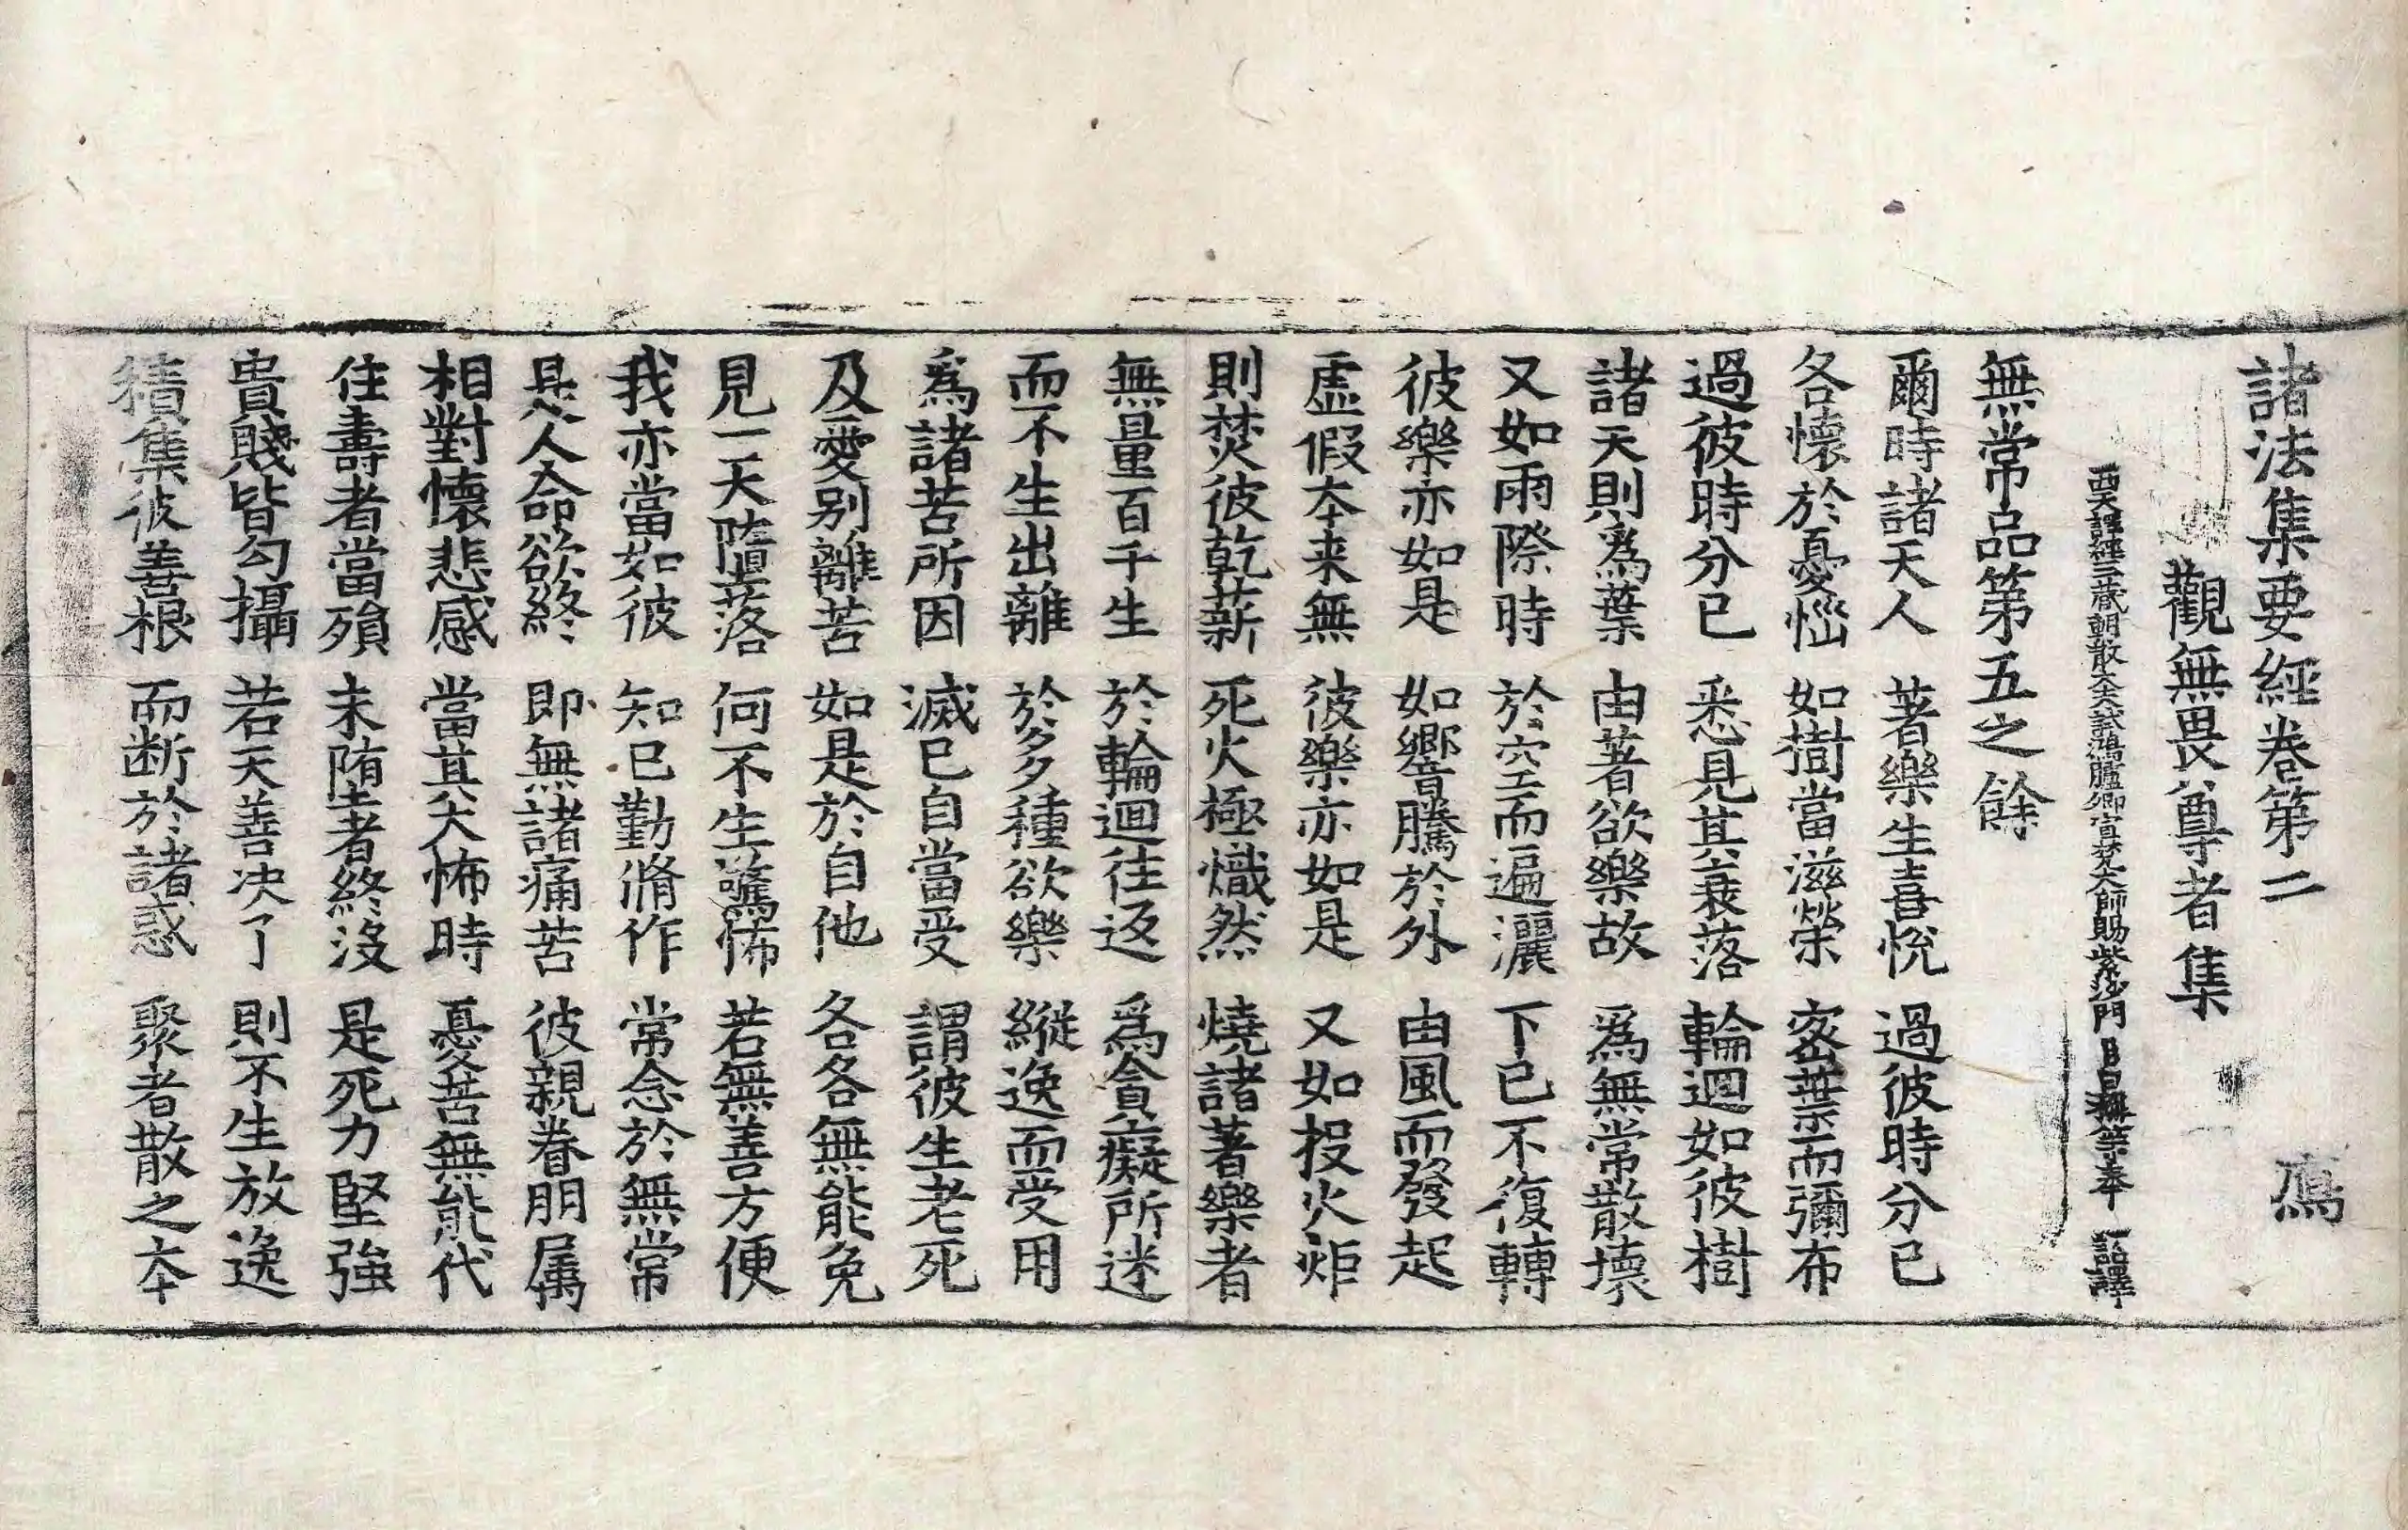 諸法集要經卷第二 鴈
觀無畏尊者集
西天譯經三藏朝散大夫試鴻臚卿宣梵大師賜紫沙門臣日稱等奉 詔譯
無常品第五之餘
爾時諸天人 著樂生喜悅 過彼時分已
各懷於憂惱 如樹當滋榮 密葉而彌布
過彼時分已 悉見其衰落 輪迴如彼樹
諸天則爲葉 由著欲樂故 爲無常散壞
又如雨際時 於空而遍灑 下已不復轉
彼樂亦如是 如響騰於外 由風而發起
虛假本来無 彼樂亦如是 又如投火炬
則焚彼乾薪 死火極熾然 燒諸著樂者
無量百千生 於輪迴往返 爲貪癡所迷
而不生出離 於多種欲樂 縱逸而受用
爲諸苦所因 滅已自當受 謂彼生老死
及愛別離苦 如是於自他 各各無能免
見一天墮落 何不生驚怖 若無善方便
我亦當如彼 知已勤脩作 常念於無常
是人命欲終 即無諸痛苦 彼親眷朋属
相對懷悲感 當其大怖時 憂苦無能代
住壽者當殞 未墮者終沒 是死力堅強
貴賤皆勾攝 若天善決了 則不生放逸
積集彼善根 而断於諸惑 聚者散之本